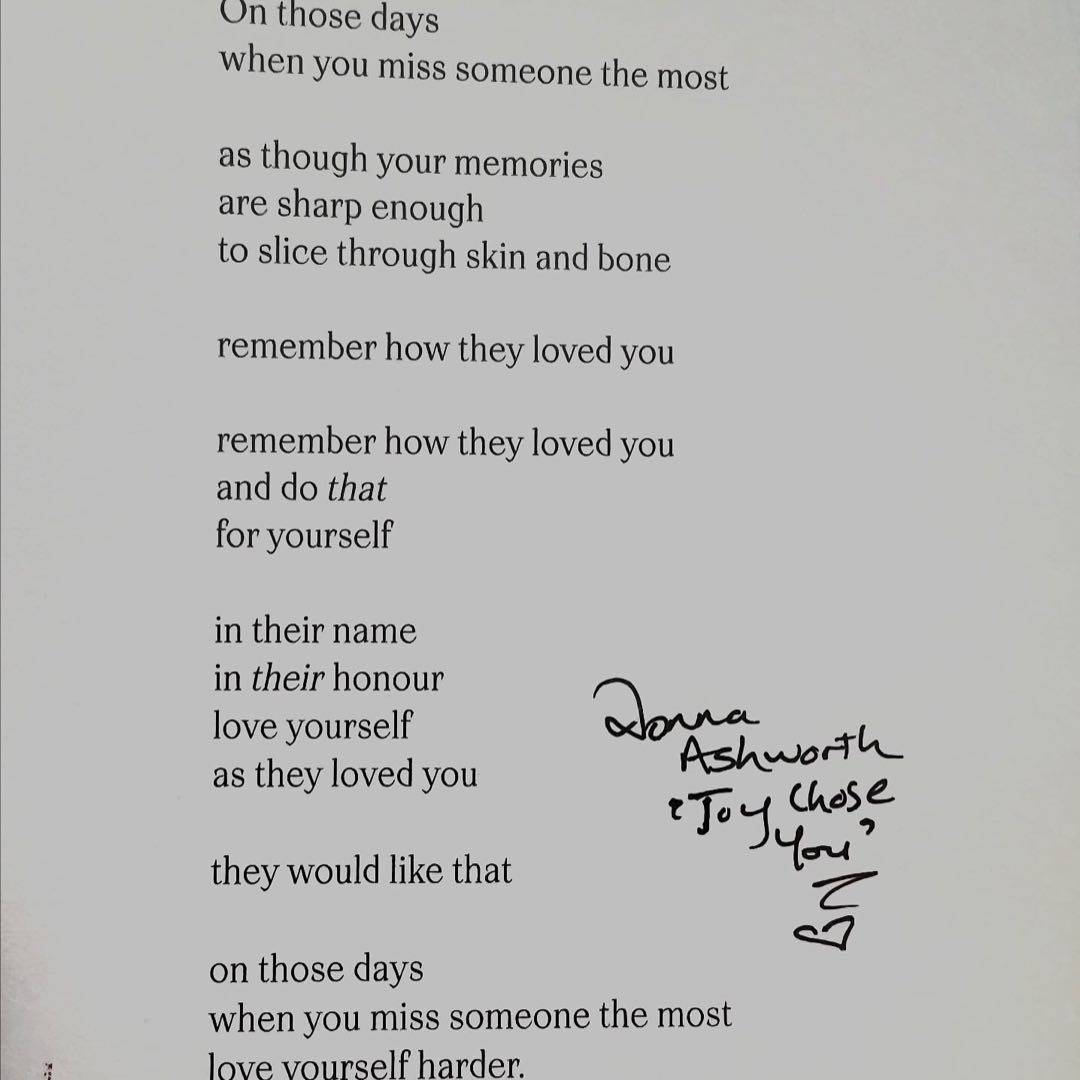 On those days
when you miss someone the most
as though your memories
are sharp enough
to slice through skin and bone
remember how they loved you
remember how they loved you
and do that
for yourself
in their name
in their honour
love yourself
as they loved you
they would like that
on those days
when you miss someone the most
love yourself harder.
Donna
Ashworth
'Joy Chose
You'